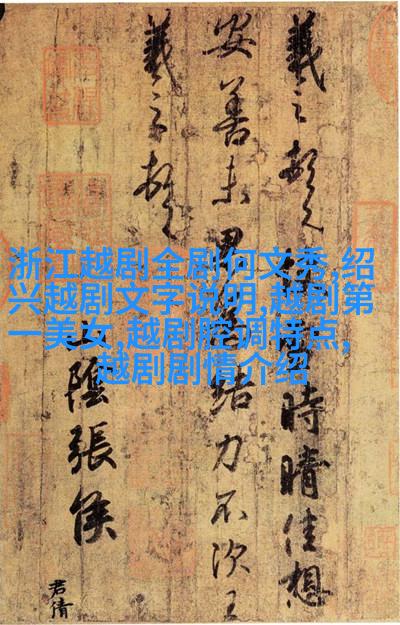 浙江越剧全剧何文秀,绍
兴越剧文字说明,越剧第
一美女,越剧腔调特点,
越剧剧情介绍
羲之頓首時晴佳想
安善未果結力不次王
羲之頓首
山陰張侯
君倩